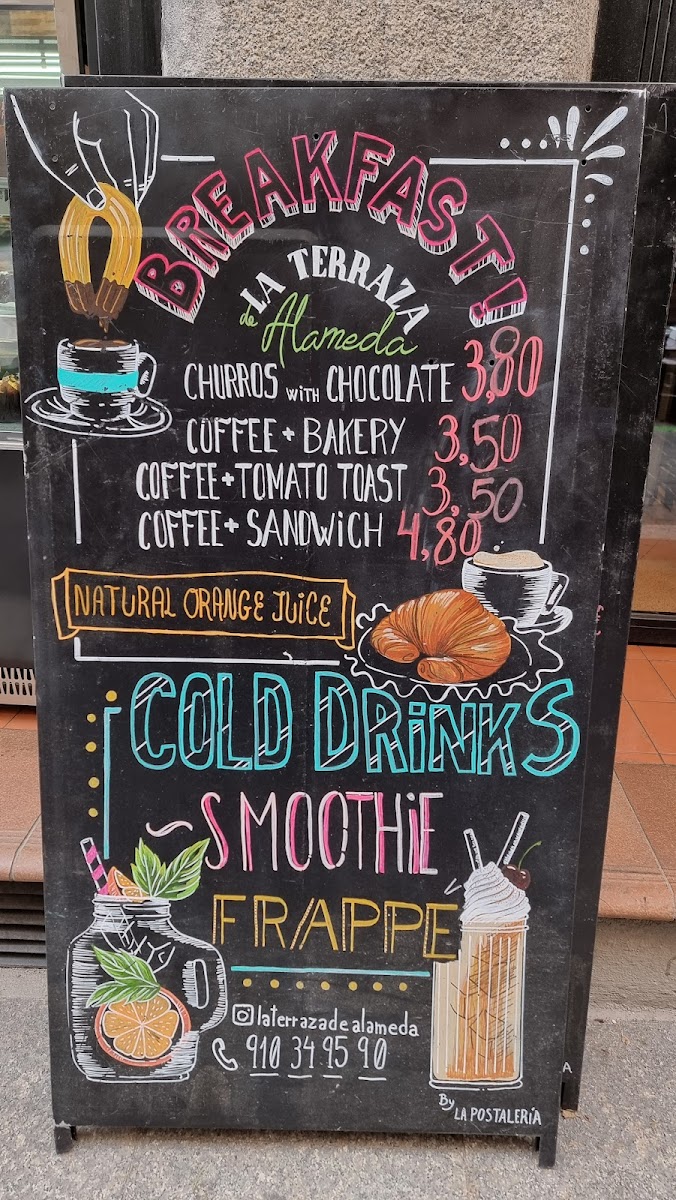 BREAKFAST!
LA TERRAZA
de Alameda
CHURROS WiTH CHOCOLATE 3,80
COFFEE + BAKERY 3,50
COFFEE + TOMATO TOAST 3,50
COFFEE + SANDWiCH 4,80
NATURAL ORANGE JUiCE
COLD DRiNKS
~SMOOTHiE
FRAPPE
laterrazadealameda
910 34 95 90
By LA POSTALERiA